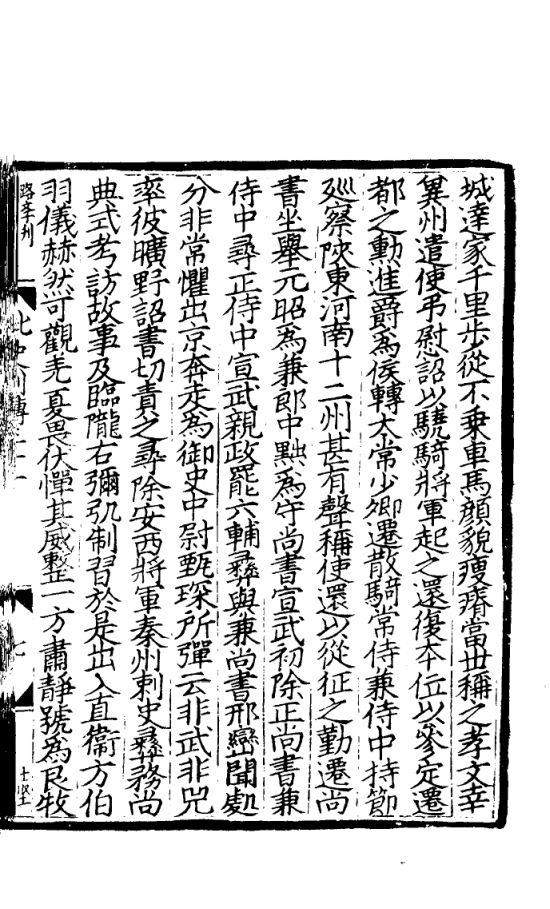 城達家千里步從不乘車馬顔貌瘦瘠當世稱之孝文幸
兾州遣使弔慰詔以驍騎將軍起之還復本位以參定遷
都之勳進爵爲侯轉太常少卿遷散騎常侍兼侍中持節
廵察陜東河南十二州甚有聲稱使還以從征之勤遷尚
書坐舉元昭爲兼郎中黜爲守尚書宣武初除正尚書兼
侍中尋正侍中宣武親政罷六輔彞與兼尚書邢巒聞處
分非常懼出京奔走爲御史中尉甄琛所彈云非武非兕
率彼曠野詔書切責之尋除安西將軍秦州刺史彞務尚
典式考訪故事及臨隴右彌加制習於是出入直衞方伯
羽儀赫然可觀羌夏畏伏憚其威整一方肅靜號爲良牧
北史列傳
七